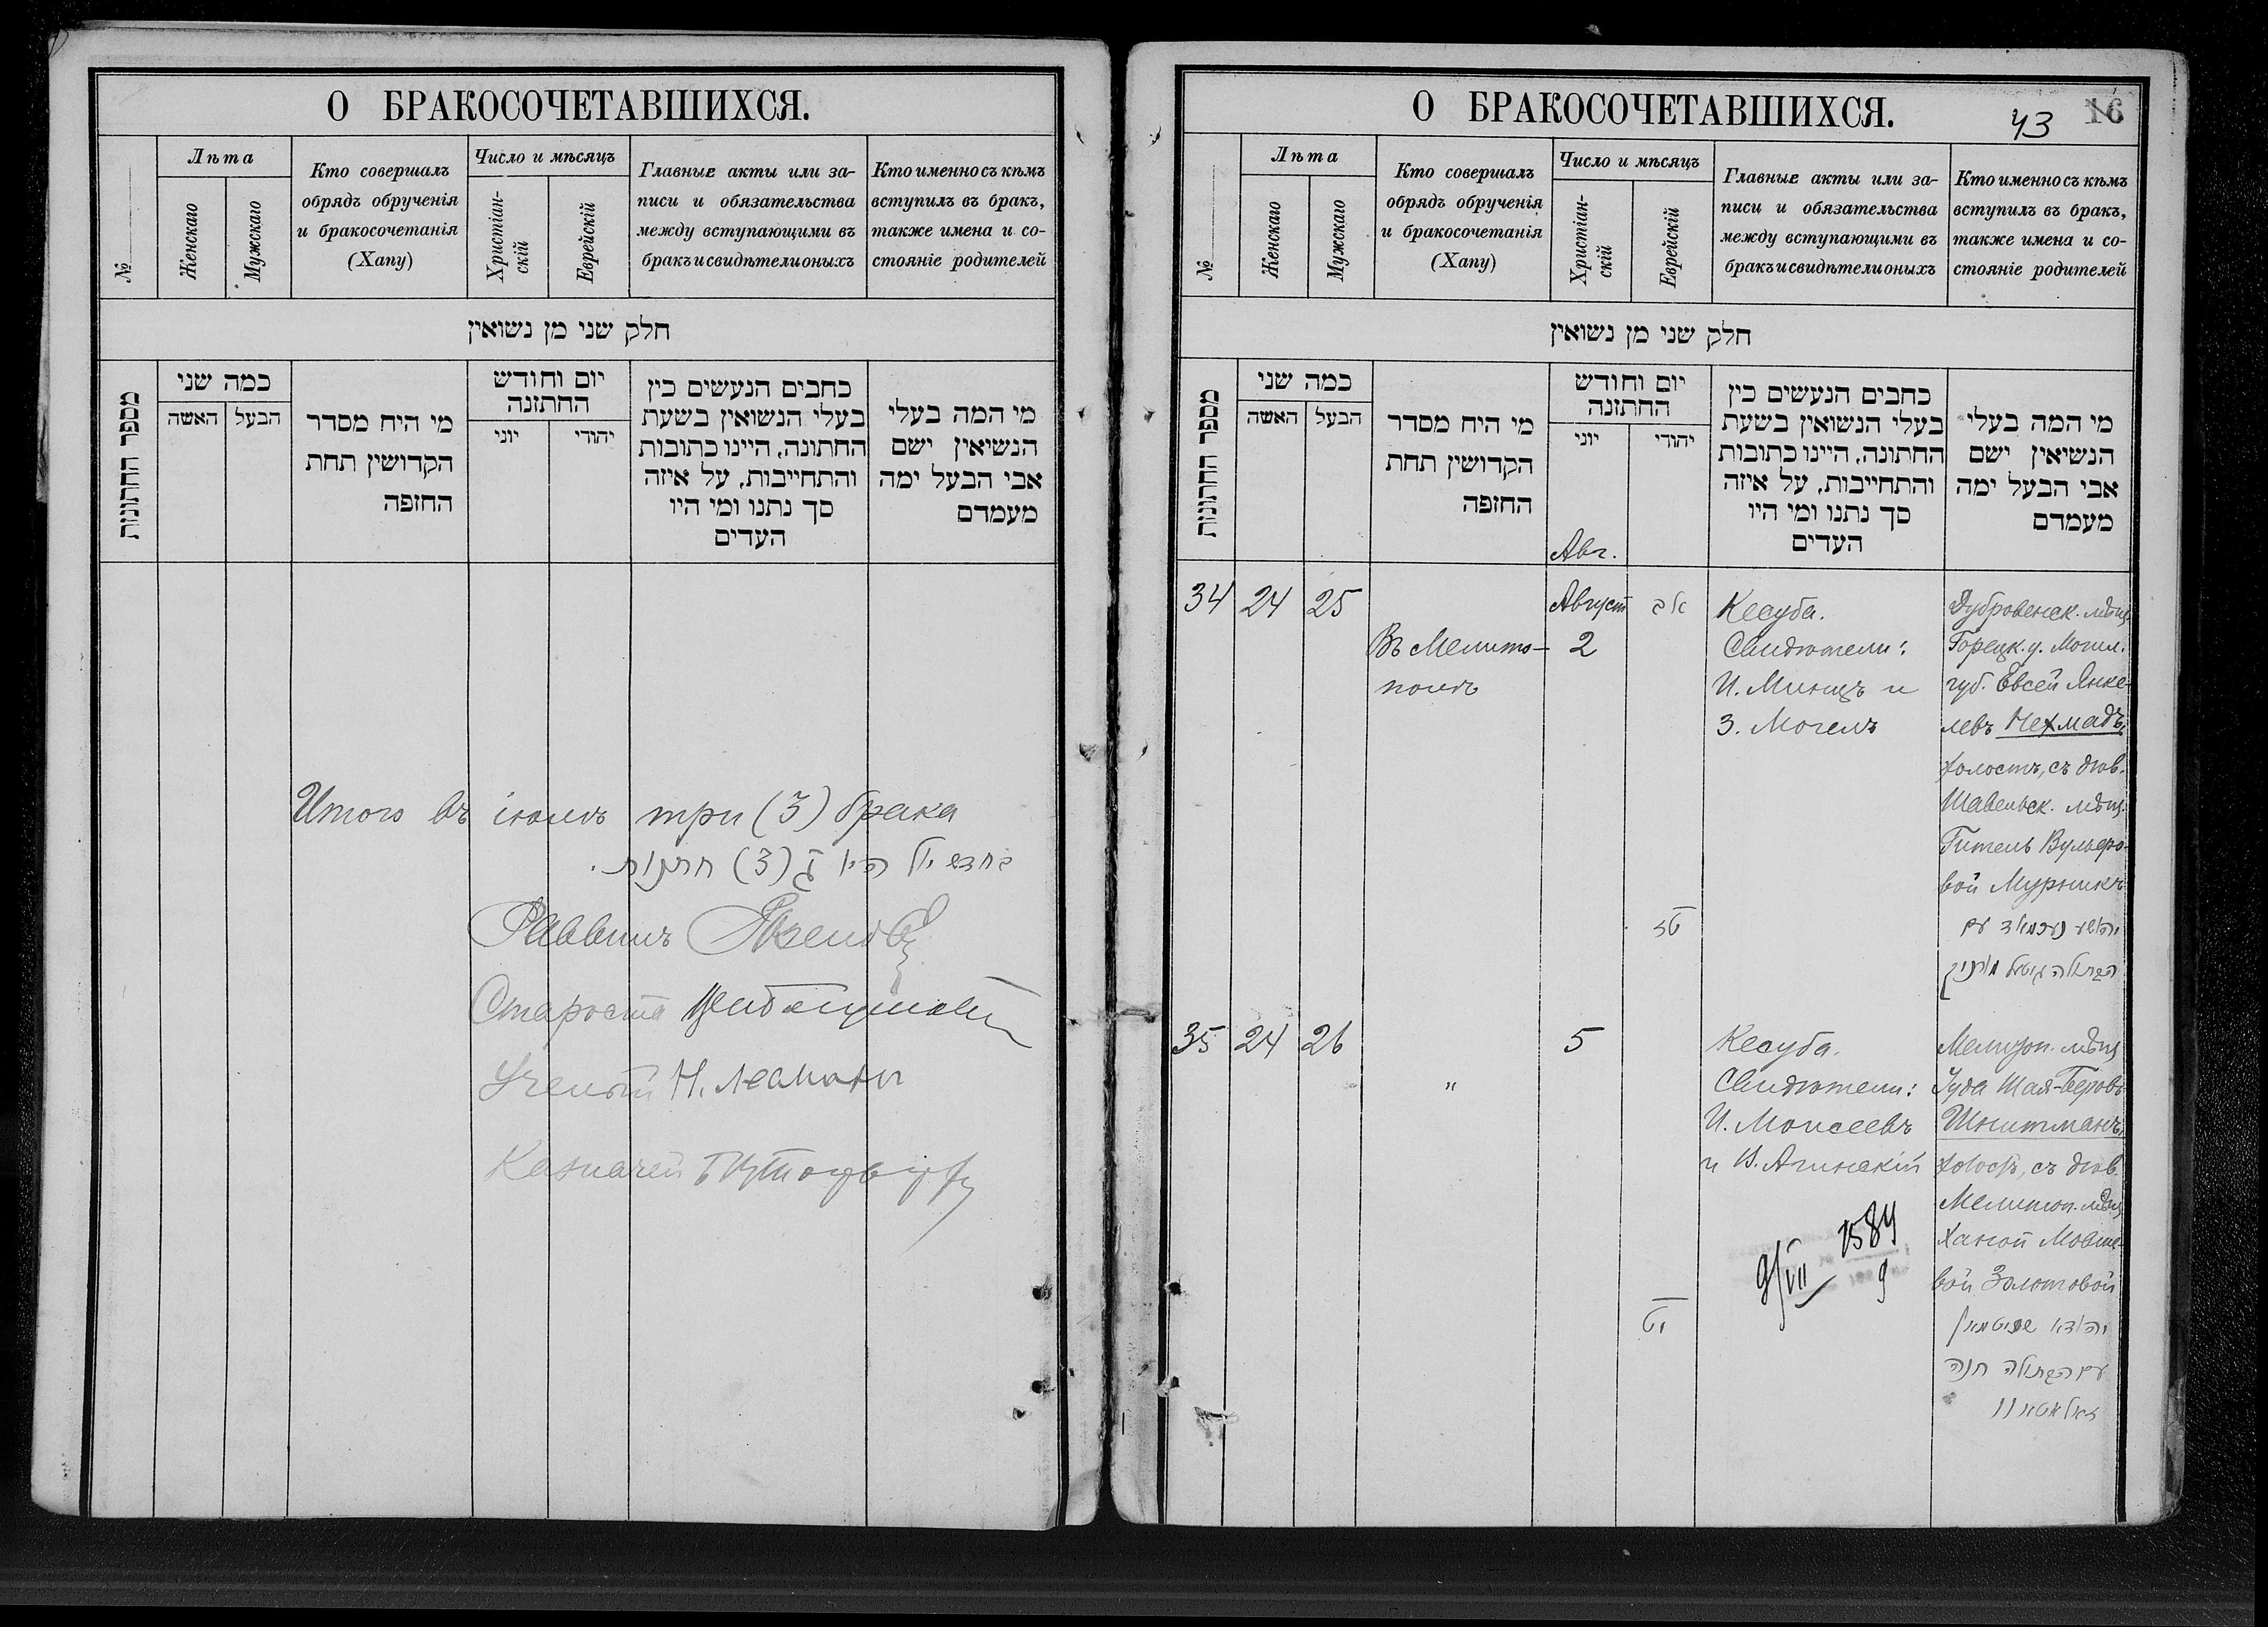 О БРАКОСОЧЕТАВШИХСЯ.
№
Лѣта
Женскаго
Мужскаго
Кто совершалъ
обрядъ обрученія
и бракосочетанія
(Хапу)
Число и мѣсяцъ
Христіан-
скій
Еврейскій
Главные акты или за-
писи и обязательства
между вступающими въ
бракъ и свидѣтели оныхъ
Кто именно съ кѣмъ
вступилъ въ бракъ,
также имена и со-
стояніе родителей
חלק שני מן נשואין
מספר החתונות
כמה שני
האשה
הבעל
מי היח מסדר
הקדושין תחת
החזפה
יום וחודש
החתזנה
יוני
יהודי
כחבים הנעשים כין
בעלי הנשואין בשעת
החתונה, היינו כתובות
והתחייבות, על איזה
סך נתנו ומי היו
העדים
מי המה בעלי
הנשיאין ישם
אבי הבעל ימה
מעמדם
Итого въ іюлѣ три (3) брака
(3) חתנות.
Раввинъ
Староста
Ученый Н.
Казначей
О БРАКОСОЧЕТАВШИХСЯ.
43
16
№
Лѣта
Женскаго
Мужскаго
Кто совершалъ
обрядъ обрученія
и бракосочетанія
(Хапу)
Число и мѣсяцъ
Христіан-
скій
Еврейскій
Главные акты или за-
писи и обязательства
между вступающими въ
бракъ и свидѣтели оныхъ
Кто именно съ кѣмъ
вступилъ въ бракъ,
также имена и со-
стояніе родителей
חלק שני מן נשואין
מספר החתונות
כמה שני
האשה
הבעל
מי היח מסדר
הקדושין תחת
החזפה
יום וחודש
החתזנה
יוני
יהודי
כחבים הנעשים כין
בעלי הנשואין בשעת
החתונה, היינו כתובות
והתחייבות, על איזה
סך נתנו ומי היו
העדים
מי המה בעלי
הנשיאין ישם
אבי הבעל ימה
מעמדם
Авг.
34
24
25
Въ Мелито-
полѣ
Август
2
אב
טז
Кесуба.
Свидѣтели:
И. Минцъ и
З. Могель
Дубровенск. мѣщ.
Горецк. у. Могил.
губ. Евсей Янке-
левъ Нехмадъ,
холостъ, съ дѣв.
Шавельск. мѣщ.
Гитель Вульфо-
вой Мурникъ
יהושע נעכמאד עם
הבתולה גיטל מורניק
35
24
26
"
5
יט
Кесуба.
Свидѣтели:
И. Моисеевъ
и В. Агинскій
9/VII 1584
9
Мелитоп. мѣщ
Іуда Шая-Беровъ
Шнитманъ,
холост, съ дѣв.
Мелитоп. мѣщ
Ханой Мовше-
вой Золотовой
יהודא שניטמאן
עם הבתולה חנה
זאלאטאוו